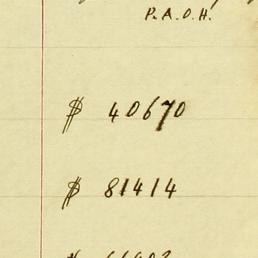 P.A.O.H.
$ 40670
$ 81414